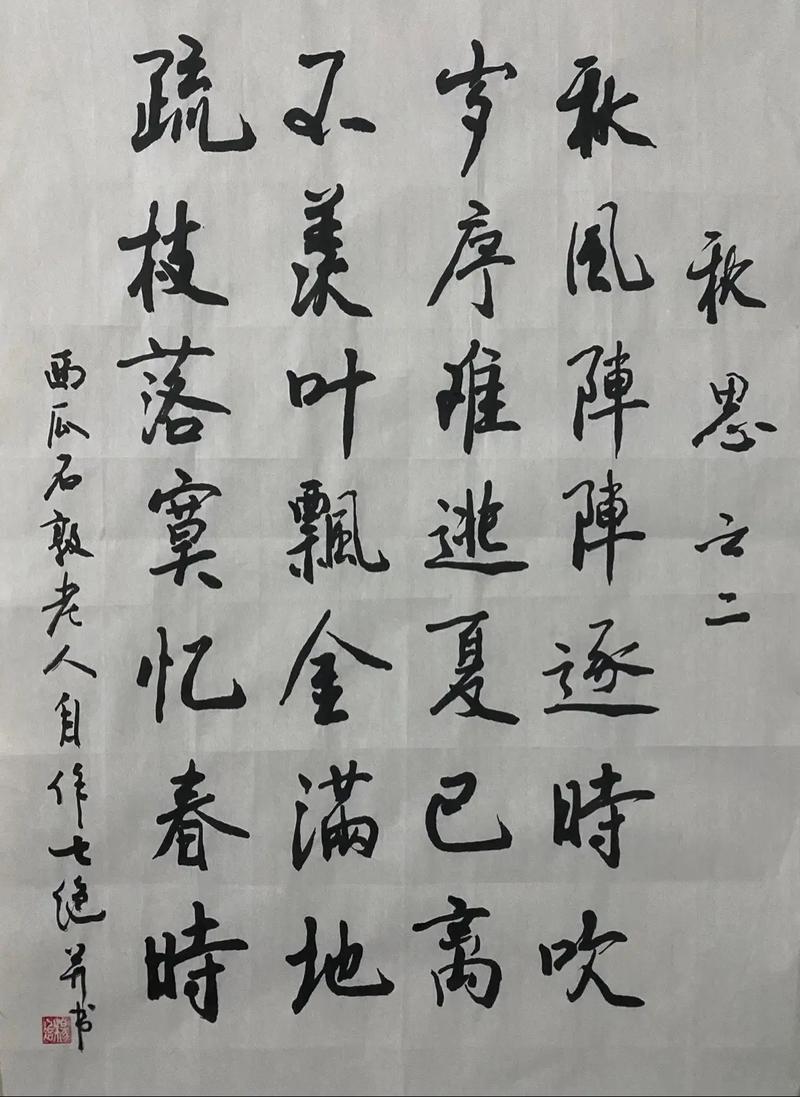 秋思之二
秋風陣陣逐時吹
岁序难逃夏已离
不羡叶飄金滿地
疏枝落寞忆春時
西瓜石敦老人自作七绝并书